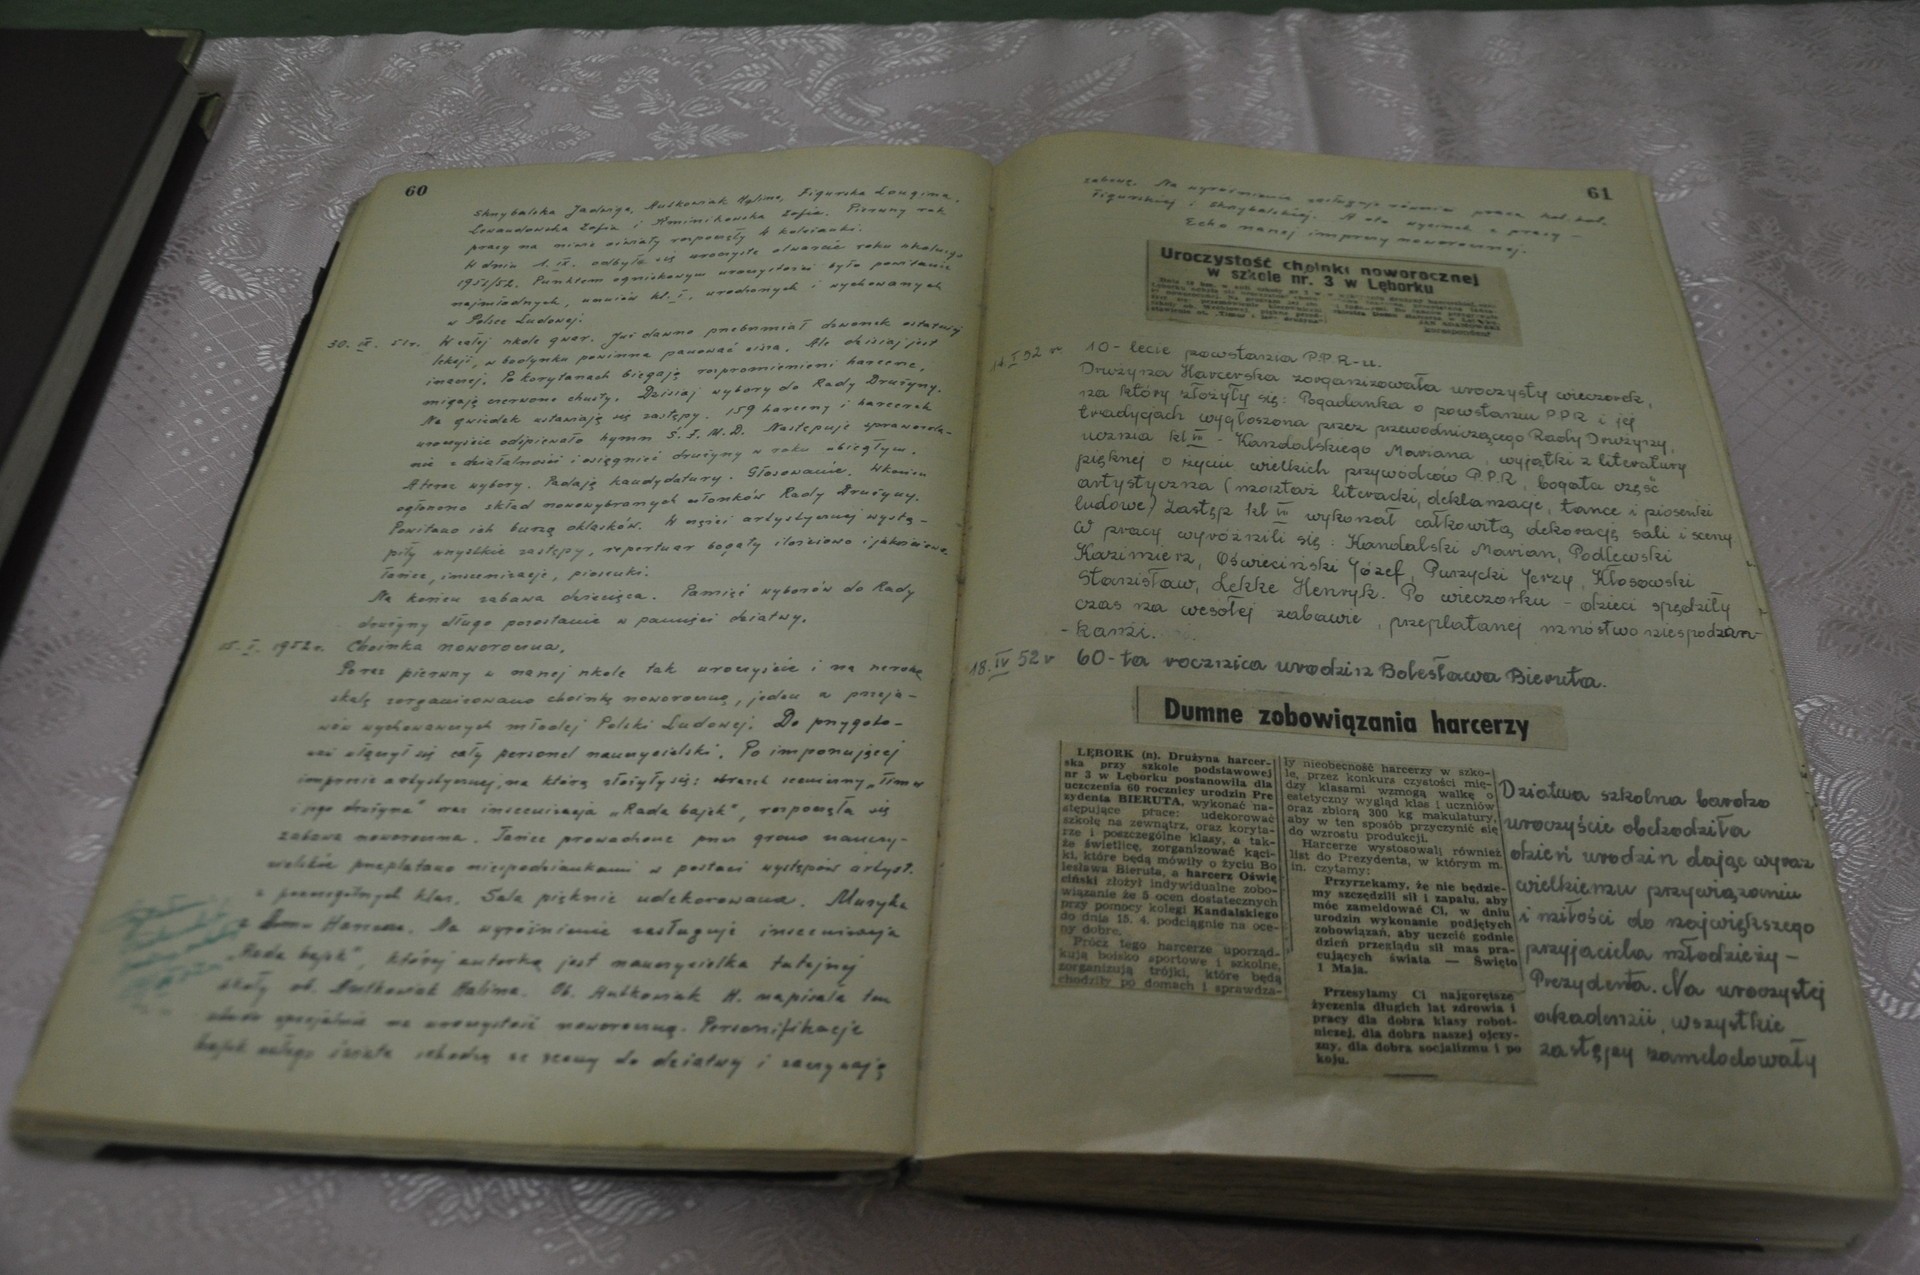 60
Skrzybalska Jadwiga, Rutkowiak Halina, Figurska Longina,
Lewandowska Zofia i Kminikowska Zofia. Pierwszy rok
pracy na niwie oświaty rozpoczęły 4 koleżanki.
W dniu 1.IX. odbyło się uroczyste otwarcie roku szkolnego
1951/52. Punktem ogniskowym uroczystości było powitanie
najmłodszych, uczniów kl. I, urodzonych i wychowanych
w Polsce Ludowej.
30. IX. 51r. W całej szkole gwar. Już dawno przebrzmiał dzwonek ostatniej
lekcji, w budynku powinna panować cisza. Ale dzisiaj jest
inaczej. Po korytarzach biegają rozpromienieni harcerze,
migają czerwone chusty. Dzisiaj wybory do Rady Drużyny.
Na gwizdek ustawiają się zastępy. 159 harcerzy i harcerek
uroczyście odśpiewało hymn Ś.F.M.D. Następuje sprawozda-
nie z działalności i osiągnięć drużyny w roku ubiegłym.
A teraz wybory. Padają kandydatury. Głosowanie. W końcu
ogłoszono skład nowowybranych członków Rady Drużyny.
Powitano ich burzą oklasków. W części artystycznej wystą-
piły wszystkie zastępy, repertuar bogaty ilościowo i jakościowo
tańce, inscenizacje, piosenki.
Na końcu zabawa dziecięca. Pamięć wyborów do Rady
drużyny długo pozostanie w pamięci dziatwy.
15. I. 1952r. Choinka noworoczna.
Po raz pierwszy w naszej szkole tak uroczyście i na szeroką
skalę zorganizowano choinkę noworoczną, jeden z przeja-
wów wychowawczych młodej Polski Ludowej. Do przygoto-
wań włączył się cały personel nauczycielski. Po imponującej
imprezie artystycznej, na którą złożyły się: obrazek sceniczny „Timur
i jego drużyna" oraz inscenizacja „Rada bajek", rozpoczęła się
zabawa noworoczna. Tańce prowadzone przez grono nauczy-
cielskie przeplatano niespodziankami w postaci występów artyst.
z poszczególnych klas. Sala pięknie udekorowana. Muzyka
z Domu Harcerza. Na wyróżnienie zasługuje inscenizacja
„Rada bajek", której autorką jest nauczycielka tutejszej
szkoły ob. Rutkowiak Halina. Ob. Rutkowiak H. napisała ten
utwór specjalnie na uroczystość noworoczną. Personifikacje
bajek całego świata schodzą ze sceny do dziatwy i zaczynają
61
zabawę. Na wyróżnienie zasługuje również praca kol. kol.
Figurskiej i Skrzybalskiej. A oto wycinek z prasy —
Echo naszej imprezy noworocznej.
Uroczystość choinki noworocznej
w szkole nr. 3 w Lęborku
korespondent
I 52 r 10-lecie powstania P.P.R-u.
Drużyna Harcerska zorganizowała uroczysty wieczorek,
na który złożyły się: Pogadanka o powstaniu PPR i jej
tradycjach wygłoszona przez przewodniczącego Rady Drużyny,
ucznia kl VII - Kandalskiego Mariana, wyjątki z literatury
pięknej o życiu wielkich przywódców P.P.R, bogata część
artystyczna (montaż literacki, deklamacje, tańce i piosenki
ludowe) Zastęp kl VII wykonał całkowitą dekorację sali i sceny
W pracy wyróżnili się: Kandalski Marian, Podlewski
Kazimierz, Oświeciński Józef, Purzycki Jerzy, Kłosowski
Stanisław, Lekke Henryk. Po wieczorku - dzieci spędziły
czas na wesołej zabawie, przeplatanej mnóstwo niespodzian-
- kami.
18. IV 52 r 60-ta rocznica urodzin Bolesława Bieruta.
Dumne zobowiązania harcerzy
LĘBORK (n). Drużyna harcer-
ska przy szkole podstawowej
nr 3 w Lęborku postanowiła dla
uczczenia 60 rocznicy urodzin Pre
zydenta BIERUTA, wykonać na-
stępujące prace: udekorować
szkołę na zewnątrz, oraz koryta-
rze i poszczególne klasy, a tak-
że świetlicę, zorganizować kąci-
ki, które będą mówiły o życiu Bo
lesława Bieruta, a harcerz Oświę
ciński złożył indywidualne zobo-
wiązanie że 5 ocen dostatecznych
przy pomocy kolegi Kandalskiego
do dnia 15. 4. podciągnie na oce-
ny dobre.
Prócz tego harcerze uporząd-
kują boisko sportowe i szkolne,
zorganizują trójki, które będą
chodziły po domach i sprawdza-
ły nieobecność harcerzy w szko-
le, przez konkurs czystości mię-
dzy klasami wzmogą walkę o
estetyczny wygląd klas i uczniów
oraz zbiorą 300 kg makulatury,
aby w ten sposób przyczynić się
do wzrostu produkcji.
Harcerze wystosowali również
list do Prezydenta, w którym m.
in. czytamy:
Przyrzekamy, że nie będzie-
my szczędzili sił i zapału, aby
móc zameldować Ci, w dniu
urodzin wykonanie podjętych
zobowiązań, aby uczcić godnie
dzień przeglądu sił mas pra-
cujących świata — Święto
1 Maja.
Przesyłamy Ci najgorętsze
życzenia długich lat zdrowia i
pracy dla dobra klasy robot-
niczej, dla dobra naszej ojczy-
zny, dla dobra socjalizmu i po
koju.
Dziatwa szkolna bardzo
uroczyście obchodziła
dzień urodzin dając wyraz
wielkiemu przywiązaniu
i miłości do największego
przyjaciela młodzieży -
Prezydenta. Na uroczystej
akademii, wszystkie
zastępy zameldowały